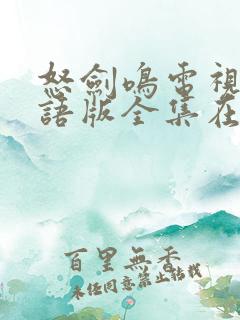 怒劍鳴電視
語版全集在
百里無香
未經同意禁止轉載